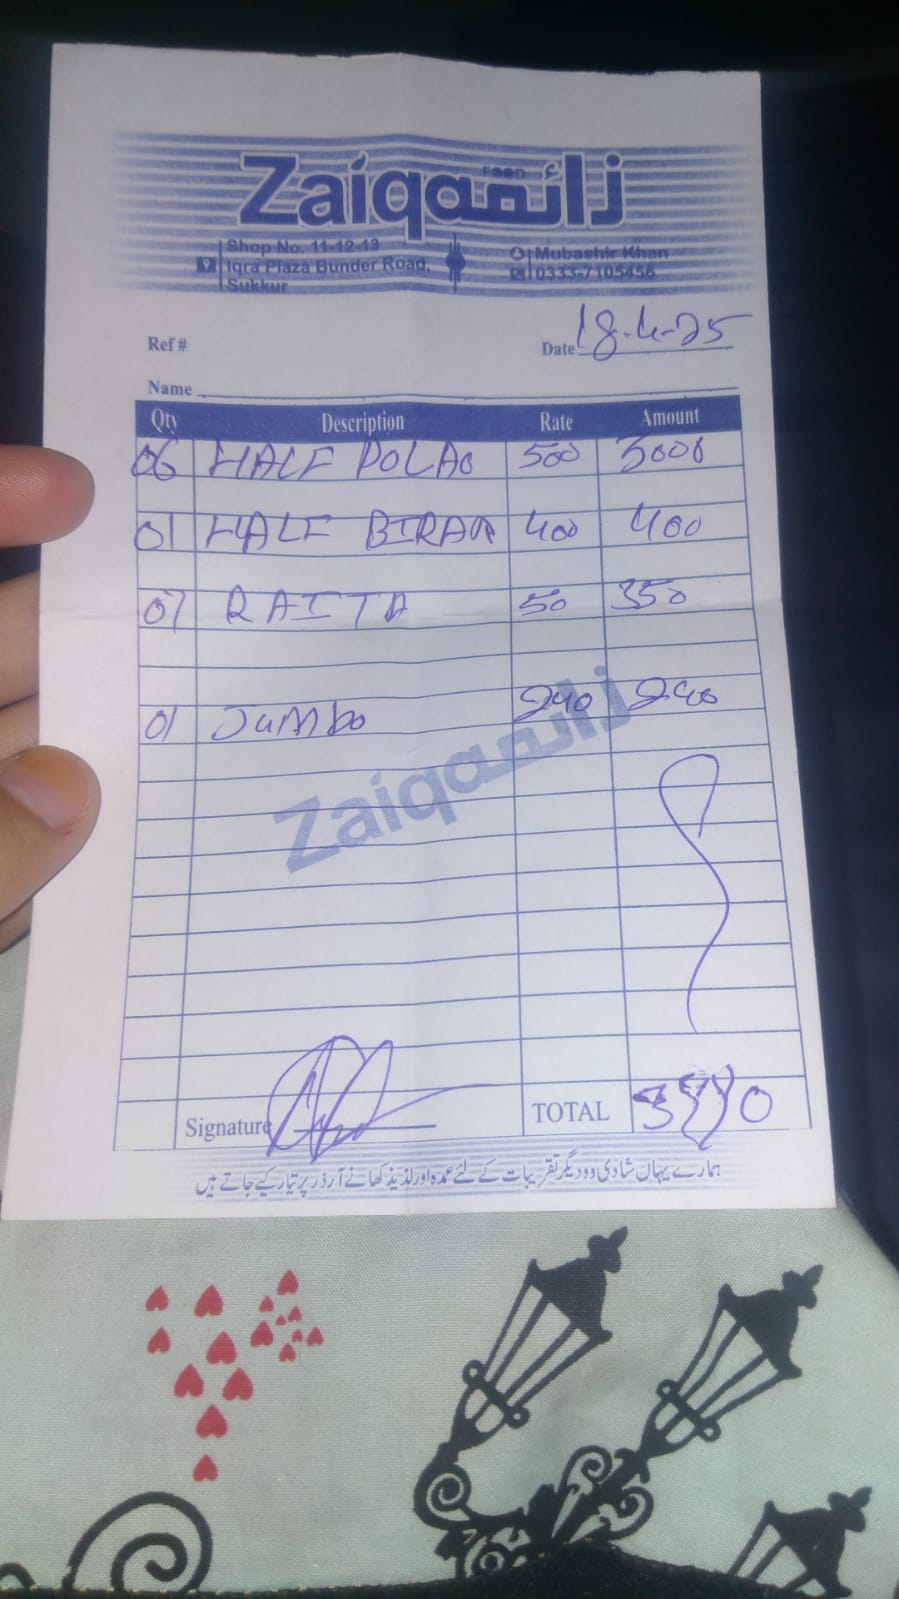 Zaiqaذائقہ
FOOD
Shop No. 11-12-13
Iqra Plaza Bunder Road,
Sukkur
Mubashir Khan
0333-7105456
Ref #
Date 18-4-25
Name
Qty Description Rate Amount
06 HALF POLAO 500 3000
01 HALF BIRAN 400 400
07 RAITA 50 350
01 Jumbo 240 240
Zaiqaذائقہ
Signature TOTAL
ہمارے یہاں شادی و دیگر تقریبات کے لئے عمدہ اور لذیذ کھانے آرڈر پر تیار کیے جاتے ہیں